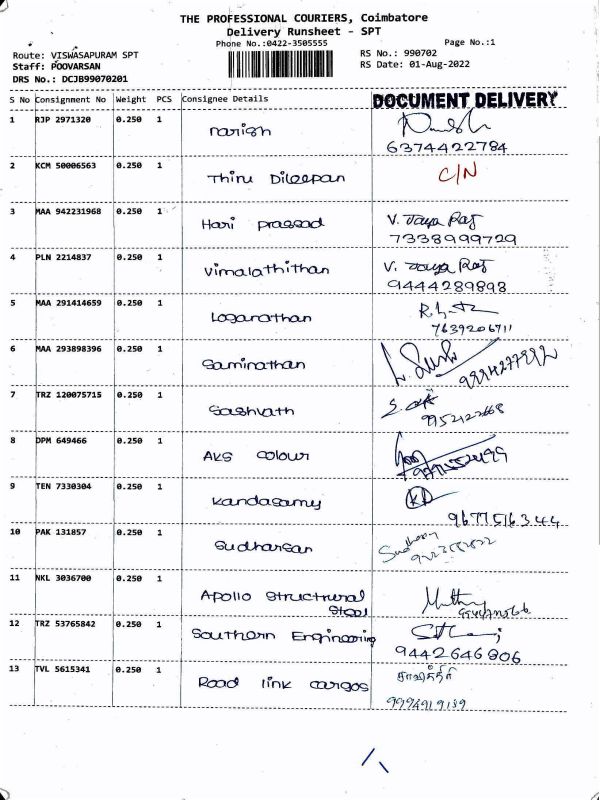 THE PROFESSIONAL COURIERS, Coimbatore
Delivery Runsheet - SPT
Phone No.:0422-3505555
Page No.:1
Route: VISWASAPURAM SPT
RS No.: 990702
Staff: POOVARSAN
RS Date: 01-Aug-2022
DRS No.: DCJB99070201
S No Consignment No Weight PCS Consignee Details DOCUMENT DELIVERY
1 RJP 2971320 0.250 1 narish
6374422784
2 KCM 50006563 0.250 1 Thiru Dileepan C/N
3 MAA 942231968 0.250 1 Hari prassad V. Jaya Raj
7338999729
4 PLN 2214837 0.250 1 vimalathithan V. Jaya Raj
9444289898
5 MAA 291414659 0.250 1 Loganathan
7639206711
6 MAA 293898396 0.250 1 Saminathan
7 TRZ 120075715 0.250 1 Sashvath
8 DPM 649466 0.250 1 AKS colour
9 TEN 7330304 0.250 1 kandasamy
9677516344
10 PAK 131857 0.250 1 Sudharsan
11 NKL 3036700 0.250 1 Apollo structural
Steel
12 TRZ 53765842 0.250 1 Southern Engineering
9442646806
13 TVL 5615341 0.250 1 Road link cargos